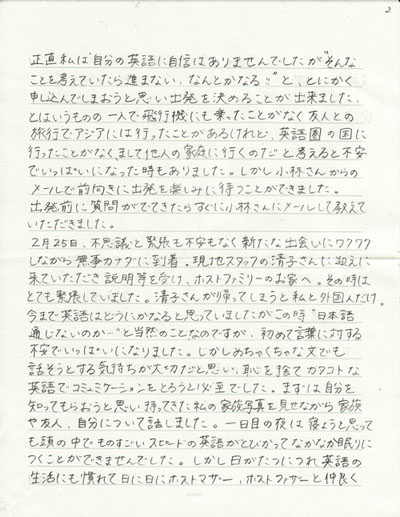 2
正直私は自分の英語に自信はありませんでしたが"そんな
ことを考えていたら進まない、なんとかなる!!"と、とにかく
申し込んでしまおうと思い出発を決めることが出来ました。
とはいうものの一人で飛行機にも乗ったことがなく友人との
旅行でアジアには行ったことがあるけれど、英語圏の国に
行ったことがなくまして他人の家庭に行くのだと考えると不安
でいっぱいになった時もありました。しかし小林さんからの
メールで前向きに出発を楽しみに待つことができました。
出発前に質問がでてきたらすぐに小林さんにメールして教えて
いただきました。
2月25日、不思議と緊張も不安もなく新たな出会いにワクワク
しながら無事カナダに到着。現地スタッフの清子さんに迎えに
来ていただき説明等を受け、ホストファミリーのお家へ。その時は
とても緊張していました。清子さんが帰ってしまうと私と外国人だけ。
今まで英語はどうにかなると思っていましたがこの時"日本語
通じないのかー"と当然のことなのですが、初めて言葉に対する
不安でいっぱいになりました。しかしめちゃくちゃな文でも
話そうとする気持ちが大切だと思い、恥を捨てカタコトな
英語でコミュニケーションをとろうと必至でした。まずは自分を
知ってもらおうと思い持ってきた私の家族写真を見せながら家族
や友人、自分について話しました。一日目の夜は寝ようと思って
も頭の中でものすごいスピードの英語がとびかってなかなか眠りに
つくことができませんでした。しかし日がたつにつれ英語の
生活にも慣れて日に日にホストマザー、ホストファザーと仲良く